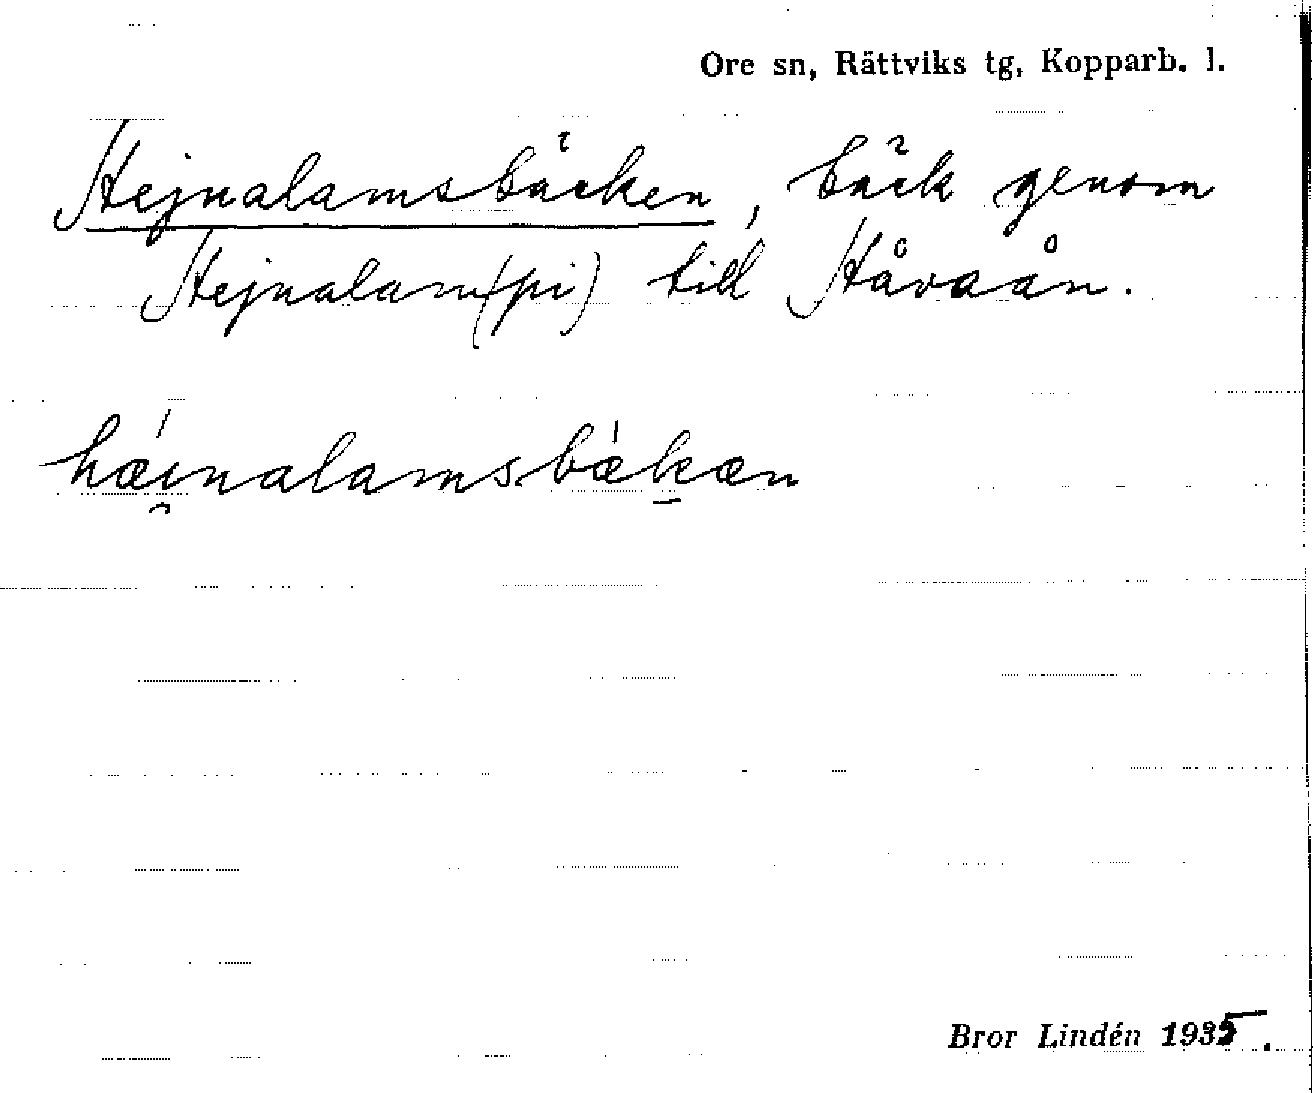 Ore sn, Rättviks tg, Kopparb. l.
Hejnalamsbäcken, bäck genom
Hejnalam(pi) till Håvaån.
hǽi̯nalamsbæ̀k̠æn
Bror Lindén 1935.